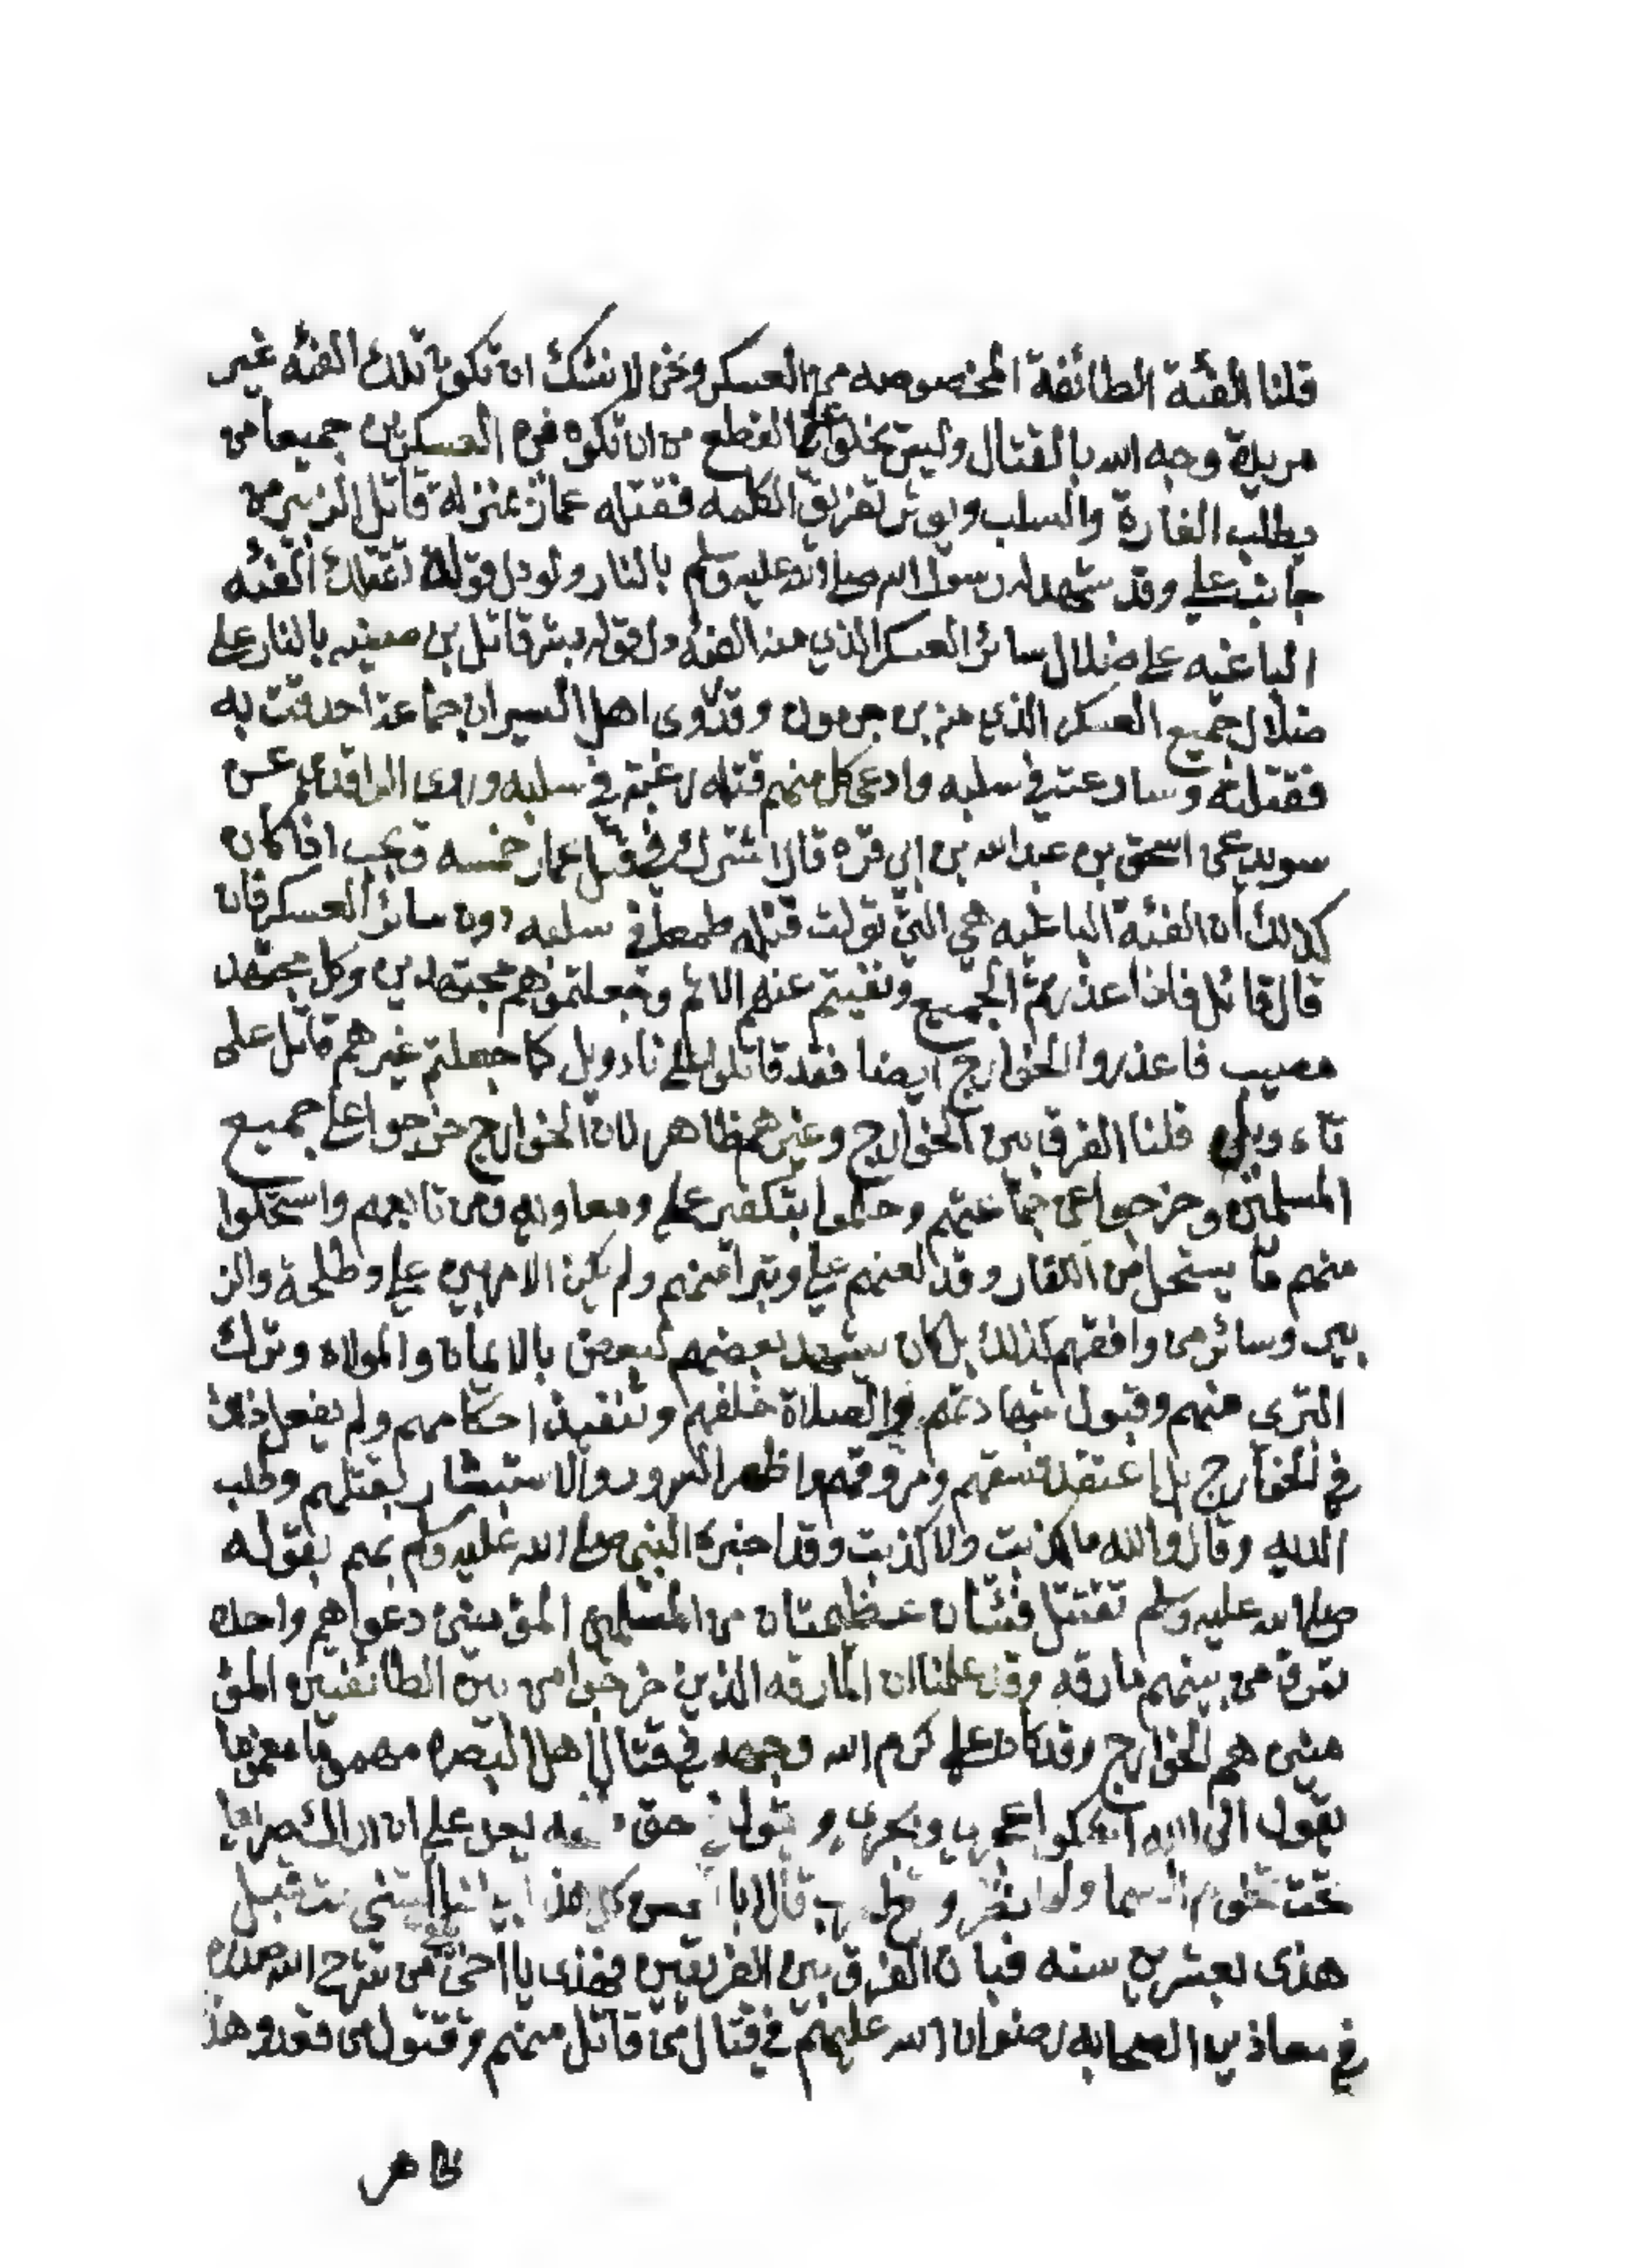 قلنا الفئة الطائفة المخصوصه من العسكر ونحن لا نشك ان تكون تلك الفئه غير
مريدة وجه الله بالقتال وليس يخلوا على القطع من ان تكون في العسكرين جميعا من
يطلب الغارة والسلب ويوثر تفريق الكلمه فقتله عمار بمنزلة قاتل الزبير من
جانب علي وقد شهد له رسول الله صلى الله عليه وسلم بالنار ولو دل قوله تقتلك الفئه
الباغيه على ضلال سائر العسكر الذي منه الفئه دل قوله بشر قاتل بن صفيه بالنار على
ضلال جميع العسكر الذي منه بن جرموز وقد روى اهل السير ان جماعة احدقت به
فقتلته وسارعت في سلبه وادعى كل منهم قتله رغبة في سلبه وروى الواقدي عن
سويد عن اسحق بن عبد الله بن ابي فره قال اشترك في قتل عمار خمسه فيجب اذا كان
كذلك ان الفئة الباغيه هي التي تولت قتله طمعا في سلبه دون سائر العسكر فان
قال قائل فاذا عذرتم الجميع ونفيتم عنهم الاثم وجعلتموهم مجتهدين وكل مجتهد
مصيب فاعذروا الخوارج ايضا فقد قاتلوا على تاءويل كما جعلتم غيرهم قاتل على
تاءويل قلنا الفرق بين الخوارج وغيرهم ظاهر لان الخوارج خرجوا على جميع
المسلمين وخرجوا عن جماعتهم وحكموا بتكفير علي ومعاويه ومن تابعهم واستحلوا
منهم ما يستحل من الكفار وقد لعنهم علي وتبرا منهم ولم يكن الامر بين علي وطلحة والز
بير وسائر من وافقهم كذلك بل كان يشهد بعضهم لبعض بالايمان والمولاه وترك
التبري منهم وقبول شهادتهم والصلاة خلفهم وتنفيذ احكامهم ولم يفعل ذلك
في الخوارج بل اعتقد فسقهم ومروقهم واظهر السرور والاستبشار بقتلهم وطلب
الديه وقال والله ما كذبت ولا كذبت وقد اخبره النبي صلى الله عليه وسلم بهم بقوله
صلى الله عليه وسلم تقتتل فئتان عظيمتان من المسلمين المؤمنين دعواهم واحده
تمرق من بينهم مارقه وقد علمنا ان المارقه الذين خرجوا من بين الطائفتين المؤ
منين هم الخوارج وقد كان علي كرم الله وجهه في قتال اهل البصره مهموما مغموما
يقول الى الله اشكوا عجري وبجري و يقول حق يعز علي ان اراك صريعا
تحت تخوم السما ولو قال ابا كل هذا ليتني مت قبل
هذى بعشرين سنه فبان الفرق بين الفريقين فهذى يا اخي من شرح الله صدره
في معاذير الصحابه رضوان الله عليهم في قتال من قاتل منهم وقتول من قعد وهذ
ظاهر